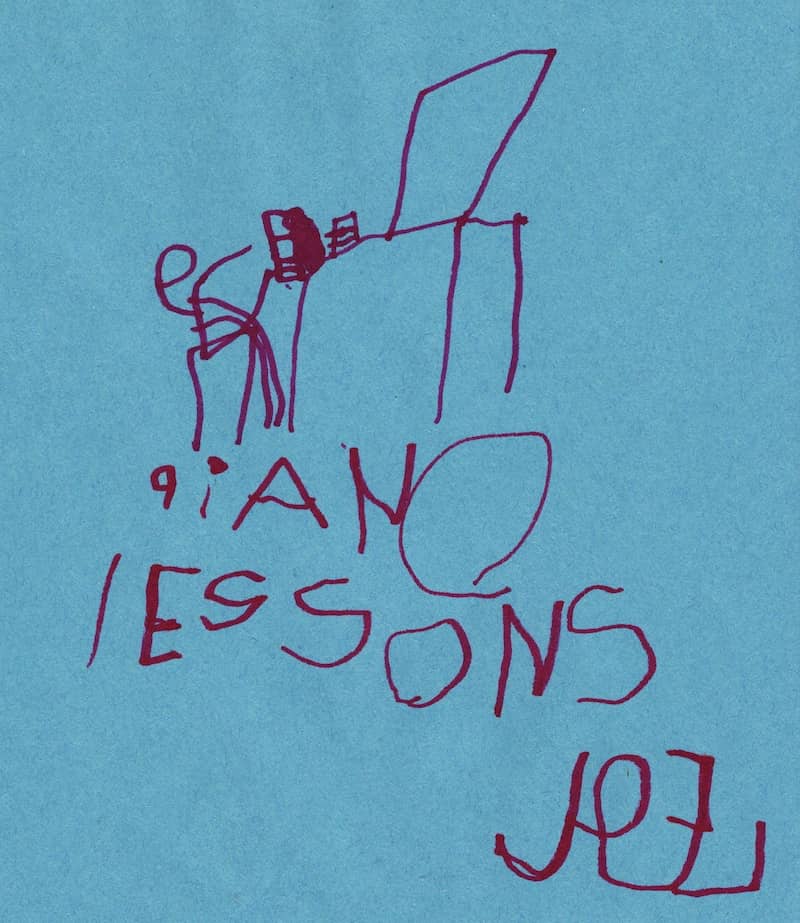 piANO
lESSONS
JEZ